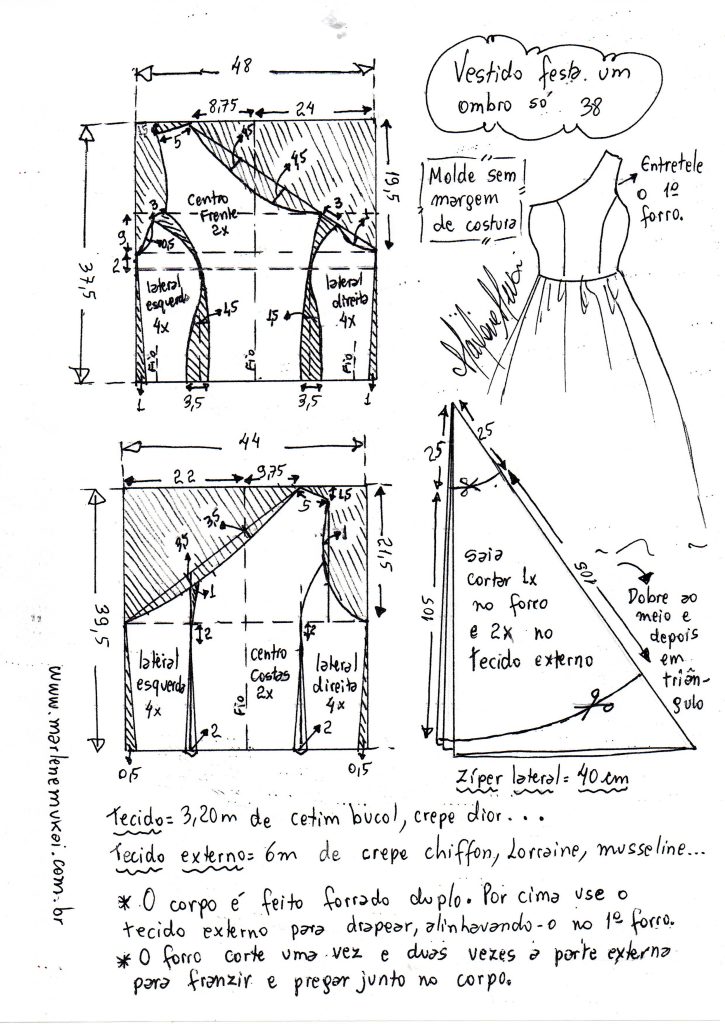 Vestido festa um
ombro só 38
48
8,75
24
1,5
5
4,5
4,5
19,5
Molde sem
margem
de costura
Entretele
o 1º
forro.
Centro
Frente
2x
3
3
1
9
0,5
2
37,5
lateral
esquerda
4x
lateral
direita
4x
1,5
1,5
Fio
Fio
Fio
1
3,5
3,5
1
44
22
9,75
1,5
5
3,5
1
21,5
1
2
2
39,5
lateral
esquerda
4x
Centro
Costas
2x
lateral
direita
4x
Fio
2
2
0,5
0,5
25
25
105
105
saia
cortar 1x
no forro
e 2x no
tecido externo
Dobre ao
meio e
depois
em
triân-
gulo
Zíper lateral = 40 cm
www.marlenemukai.com.br
Tecido = 3,20m de cetim bucol, crepe dior...
Tecido externo = 6m de crepe chiffon, Lorraine, musseline...
* O corpo é feito forrado duplo. Por cima use o
tecido externo para drapear, alinhavando-o no 1º forro.
* O forro corte uma vez e duas vezes a parte externa
para franzir e pregar junto no corpo.